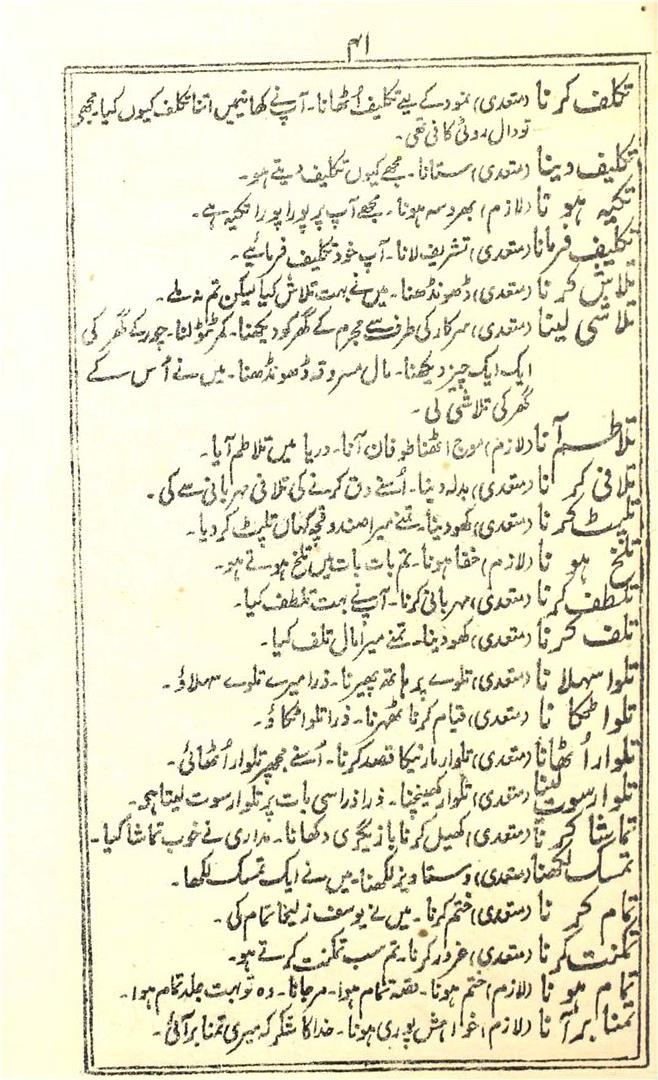 ۴۱
تکلف کرنا (متعدی) نمود کے لیے تکلیف اُٹھانا۔ آپ نے کھانیمیں اتنا تکلف کیوں کیا۔ مجھی
تو دال روٹی کافی تھی۔
تکلیف دینا (متعدی) ستانا۔ مجھے کیوں تکلیف دیتے ہو۔
تکیہ ہونا (لازم) بھروسہ ہونا۔ مجھے آپ پر پورا پورا تکیہ ہے۔
تکلیف فرمانا (متعدی) تشریف لانا۔ آپ خود تکلیف فرمائیے۔
تلاش کرنا (متعدی) ڈھونڈھنا۔ میں نے بہت تلاش کیا لیکن تم نہ ملے۔
تلاشی لینا (متعدی) سرکار کی طرف سے مجرم کے گھر کو دیکھنا۔ گھر ٹٹولنا۔ چور کے گھر کی
ایک ایک چیز دیکھنا۔ مال مسروقہ ڈھونڈھنا۔ میں نے اُس کے
گھر کی تلاشی لی۔
تلاطم آنا (لازم) موج اٹھنا طوفان آنا۔ دریا میں تلاطم آیا۔
تلافی کرنا (متعدی) بدلہ دینا۔ اُسنے دق کرنے کی تلافی مہربانی سے کی۔
تلپٹ کرنا (متعدی) کھو دینا۔ تمنے میرا صندوقچہ کہاں تلپٹ کر دیا۔
تلخ ہونا (لازم) خفا ہونا۔ تم بات بات میں تلخ ہوتے ہو۔
تلطف کرنا (متعدی) مہربانی کرنا۔ آپ نے بہت تلطف کیا۔
تلف کرنا (متعدی) کھو دینا۔ تمنے میرا مال تلف کیا۔
تلوا سہلانا (متعدی) تلوے پر ہاتھ پھیرنا۔ ذرا میرے تلوے سہلاؤ۔
تلوا ٹکانا (متعدی) قیام کرنا ٹھہرنا۔ ذرا تلوا ٹکاؤ۔
تلوار اُٹھانا (متعدی) تلوار مارنیکا قصد کرنا۔ اُسنے مجھپر تلوار اُٹھائی۔
تلوار سوت لینا (متعدی) تلوار کھینچنا۔ ذرا ذرا سی بات پر تلوار سوت لیتا ہی۔
تماشا کرنا (متعدی) کھیل کرنا بازیگری دکھانا۔ مداری نے خوب تماشا کیا۔
تمسک لکھنا (متعدی) دستاویز لکھنا۔ میں نے ایک تمسک لکھا۔
تمام کرنا (متعدی) ختم کرنا۔ میں نے یوسف زلیخا تمام کی۔
تمکنت کرنا (متعدی) غرور کرنا۔ تم سب تمکنت کرتے ہو۔
تمام ہونا (لازم) ختم ہونا۔ قصہ تمام ہوا۔ مر جانا۔ وہ تو بہت جلد تمام ہوا۔
تمنا بر آنا (لازم) خواہش پوری ہونا۔ خدا کا شکر کہ میری تمنا بر آئی۔